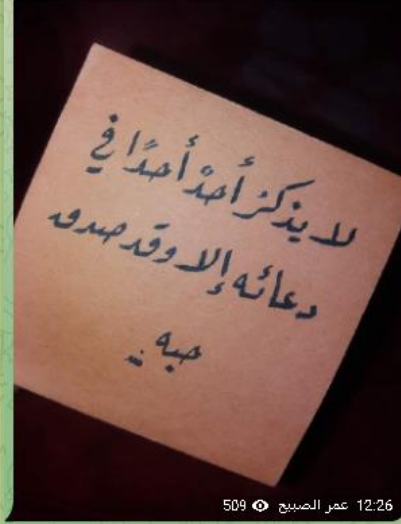 لا يذكرُ أحدٌ أحدًا في
دعائه إلا وقد صدق
حبه ..
509 عمر الصبيح 12:26